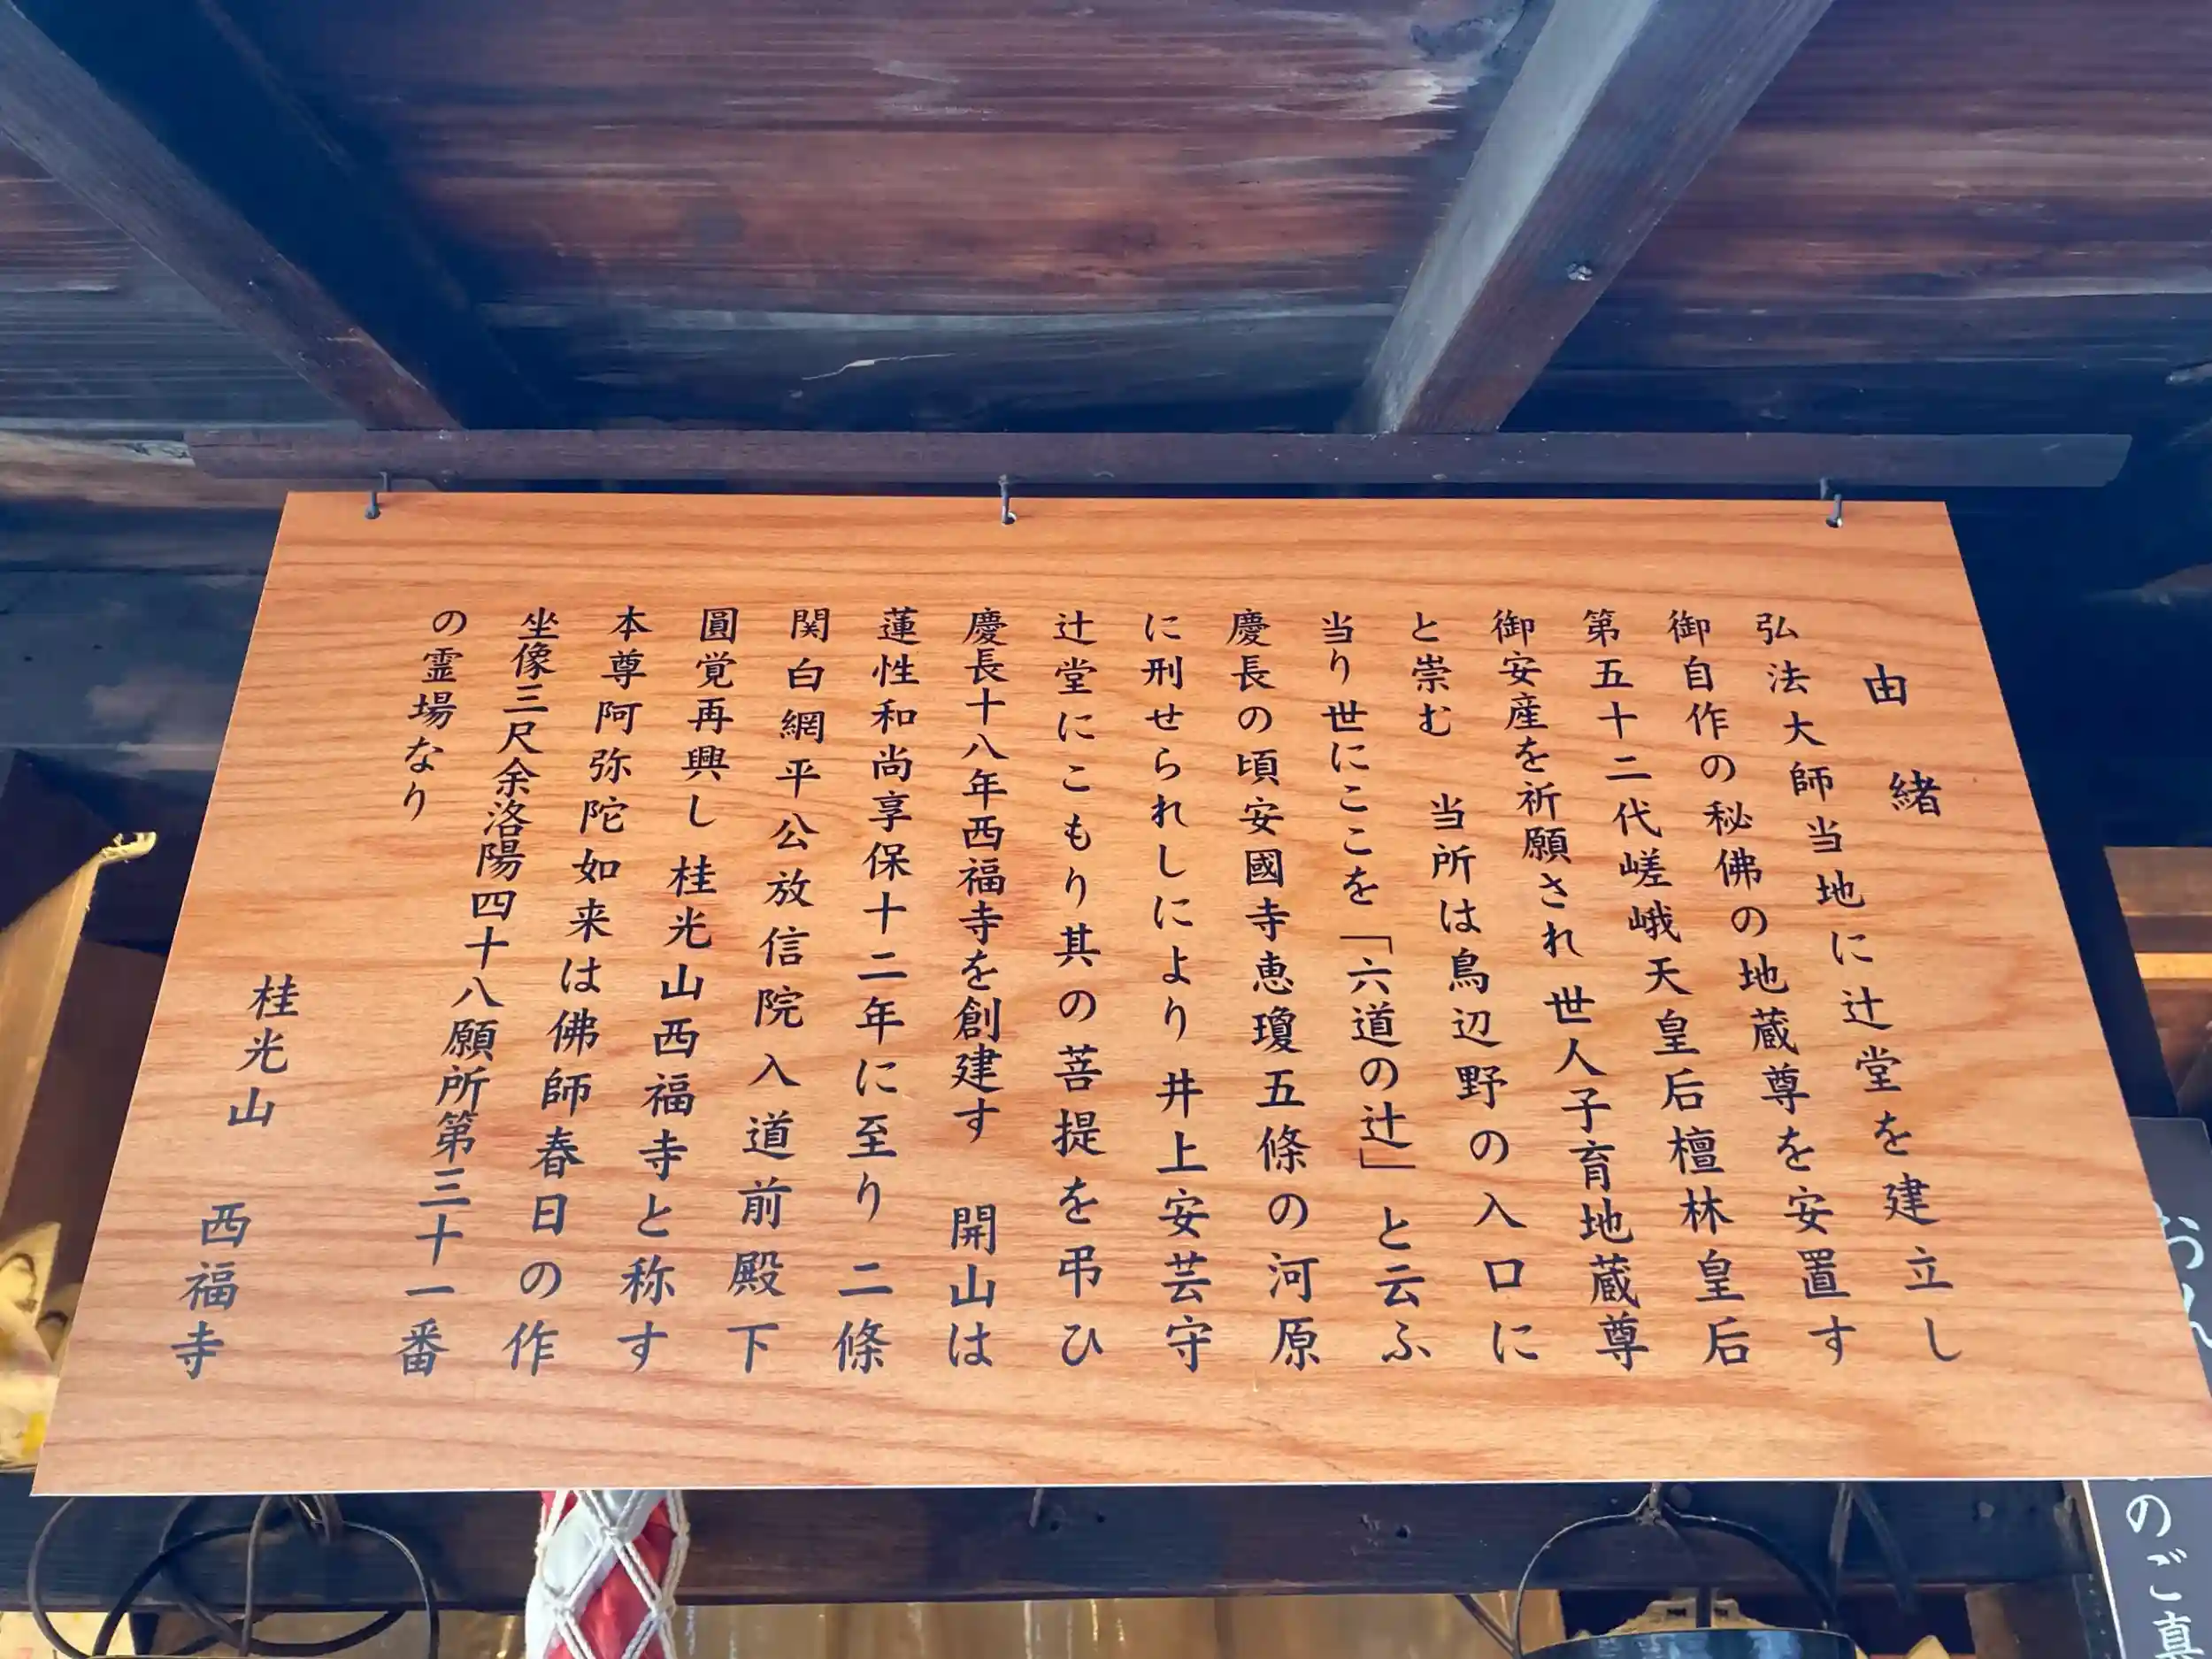 由緒
弘法大師当地に辻堂を建立し
御自作の秘佛の地蔵尊を安置す
第五十二代嵯峨天皇后檀林皇后
御安産を祈願され世人子育地蔵尊
と崇む　当所は鳥辺野の入口に
当り世にここを「六道の辻」と云ふ
慶長の頃安國寺恵瓊五條の河原
に刑せられしにより井上安芸守
辻堂にこもり其の菩提を弔ひ
慶長十八年西福寺を創建す　開山は
蓮性和尚享保十二年に至り二條
関白網平公放信院入道前殿下
圓覚再興し桂光山西福寺と称す
本尊阿弥陀如来は佛師春日の作
坐像三尺余洛陽四十八願所第三十一番
の霊場なり
桂光山　西福寺
のご真